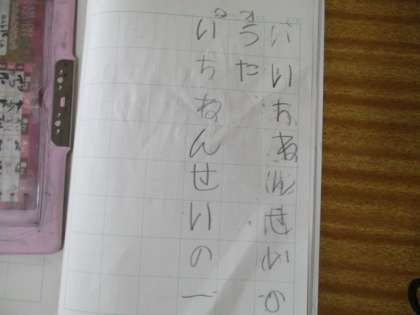 いいちねんせいの
うた
いちねんせいの一